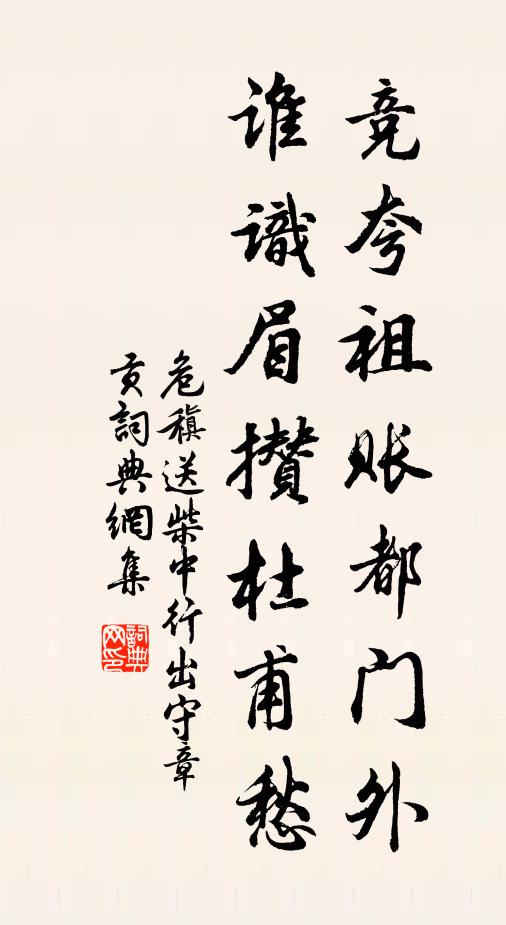 竞夸祖账都门外
谁識眉攒杜甫愁
危稹送柴中行出守章
贡詞典網集
詞典网印